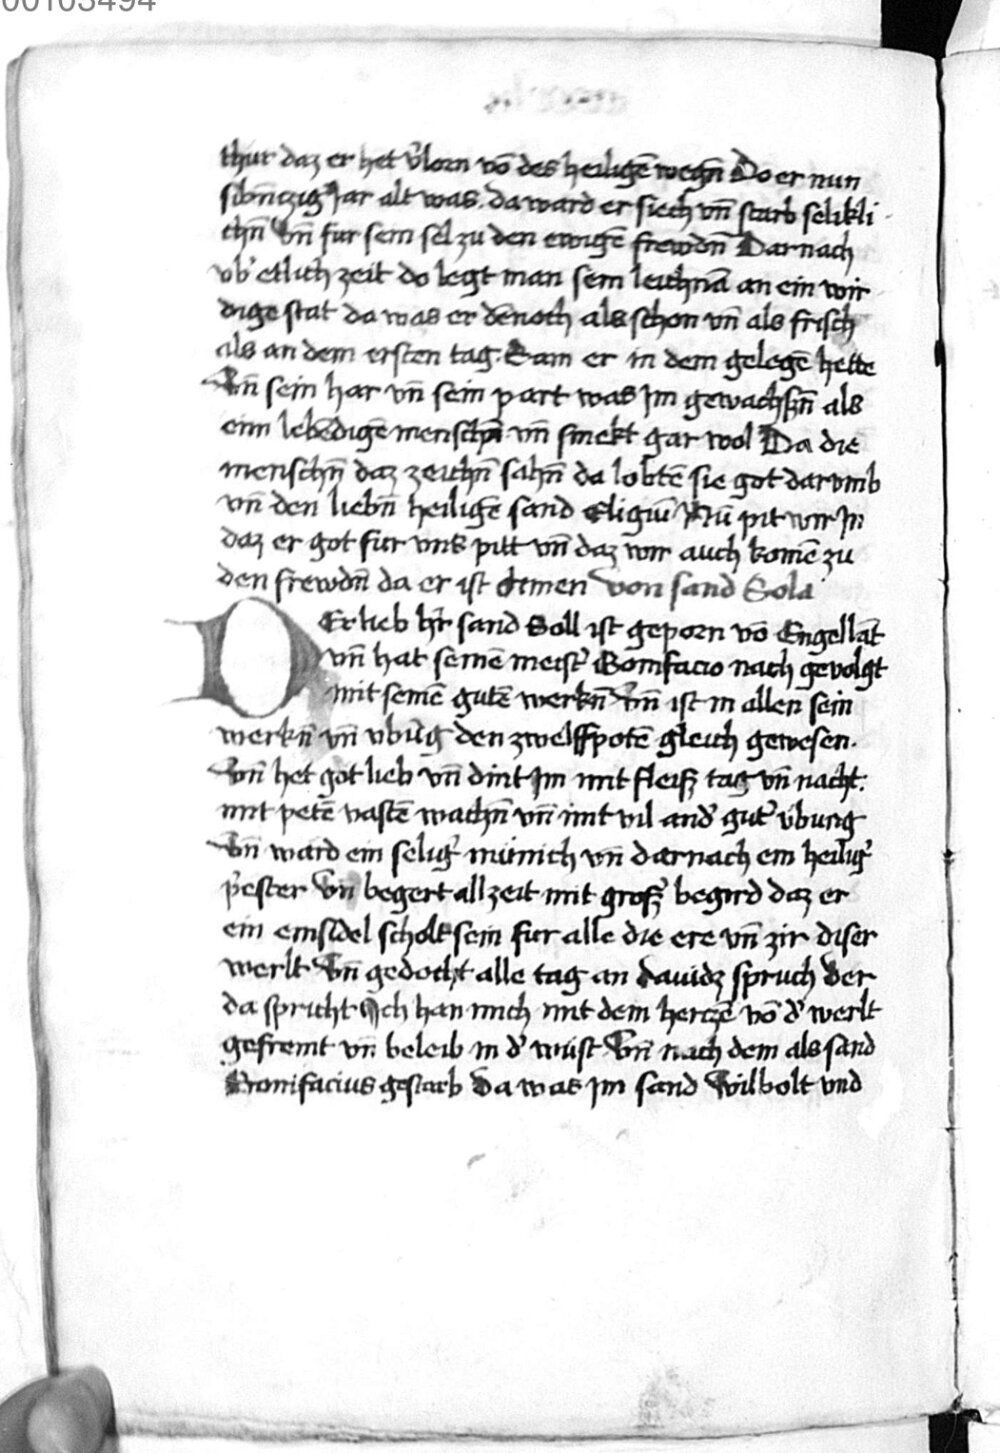 00103494
thur daz er het v̉lorn vō des heiligē wegn̄ Do er nun
sibn̄czig Jar alt was. da ward er siech vn̄ starb selikli
chn̄ Vn̄ fur sein sel zu den ewigē frewdn̄ Darnach
vb̉ etlich zeit do legt man sein leichnā an ein wir
dige stat da was er dēnoch als schon vn̄ als frisch
als an dem ersten tag. Sam er in dem gelegē hette
Vn̄ sein har vn̄ sein part was Jm gewachsn̄ als
eim lebēdigē menschn̄ vn̄ smekt gar wol Da die
menschn̄ daz zeichn̄ sahn̄ da lobtē sie got darvmb
vn̄ den liebn̄ heiligē sand Eligiū Nū pit wir Jn
daz er got fur vns pitt vn̄ daz wir auch komē zu
den frewdn̄ da er ist Amen Von sand Sola
DEr lieb hr̄ sand Soll ist geporn vō Engellāt
vn̄ hat seinē meist̉ Bonifacio nach gevolgt
mit seinē gutē werkn̄ Vn̄ ist in allen sein
werkn̄ vn̄ vbūg den zwelfpotē gleich gewesen.
Vn̄ het got lieb vn̄ dint Jm mit fleiß tag vn̄ nacht.
mit petē vastē wachn̄ vn̄ mit vil and̉ gut̉ vbung
Vn̄ ward ein selig̉ münich vn̄ darnach ein heilig̉
p̉ester Vn̄ begert allzeit mit groß̉ begird daz er
ein einsidel scholt sein fur alle die ere vn̄ zir diser
werlt Vn̄ gedocht alle tag an dauidz spruch Der
da spricht Jch han mich mit dem herczē vō d̉ werlt
gefremt vn̄ beleib in d̉ wüst Vn̄ nach dem als sand
Bonifacius gestarb Da was Jm sand Wilbolt vnd